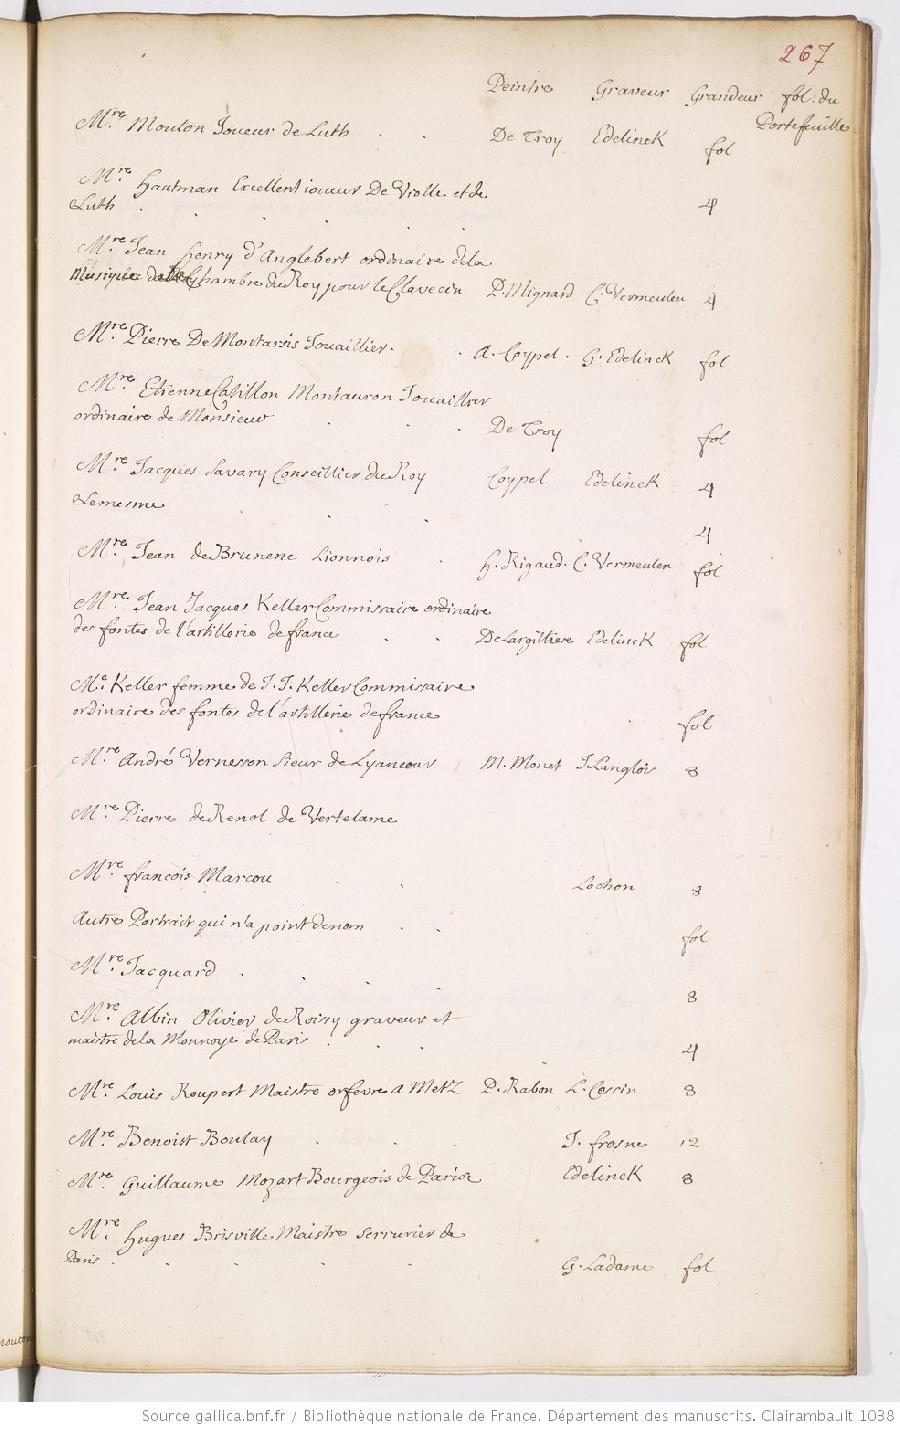 267
Peintre Graveur Grandeur fol. du
Portefeuille
M.re Mouton Joueur de Luth . . De Troy Edelinck fol
M.re Hautman Excellent ioueur De Violle et de
Luth . . . . . 4
M.re Jean Henry d'Anglebert ordinaire dela
Musique dela Chambre du Roy pour le Clavecin P. Mignard C. Vermeulen 4
M.re Pierre De Montarsis Jouaillier . . A. Coypel . G. Edelinck fol
M.re Etienne Catillon Montauron Jouaillier
ordinaire de Monsieur . . . De Troy fol
M.re Jacques Savary Conseillier du Roy Coypel Edelinck 4
Lemesme . . . 4
M.re Jean de Brunene Lionnois . H. Rigaud . C. Vermeulen fol
M.re Jean Jacques Keller Commissaire ordinaire
des fontes de l'artillerie de france . . De Largilliere Edelinck fol
M.e Keller femme de J. J. Keller Commissaire
ordinaire des fontes de l'artillerie de france fol
M.re André Vernesson Sieur de Lyancour M. Monet J. Langlois 8
M.re Pierre de Renol de Vertelame
M.re francois Marcou . . Lochon 8
Autre Portrait qui n'a point de nom . . fol
M.re Jacquard . . . . 8
M.re Albin Olivier de Roissy graveur et
maistre dela Monnoye de Paris . . . 4
M.re Louis Roupert Maistre orfevre a Metz P. Rabon L. Cossin 8
M.re Benoist Boulay . . J. frosne 12
M.re Guillaume Mozart Bourgeois de Paris Edelinck 8
M.re Hugues Brisville Maistre serrurier de
Paris . . . . . G. Ladame fol
Mouton
Source gallica.bnf.fr / Bibliothèque nationale de France. Département des manuscrits. Clairambault 1038